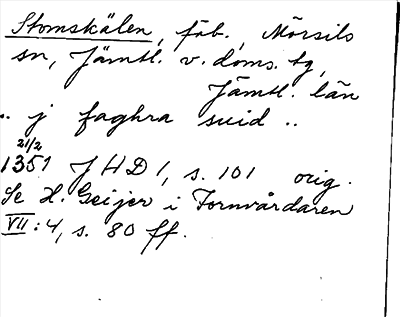 Stomskälen, fäb., Mörsils
sn, Jämtl. v. doms. tg,
Jämtl. län
.. j faghra suid ..
21/2
1351 JHD 1, s. 101 orig.
Se H. Geijer i Fornvårdaren
VII:4, s. 80 ff.